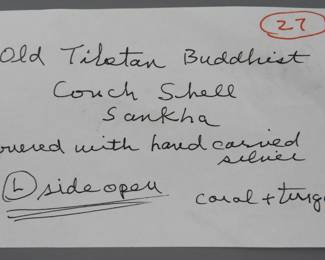 27
Old Tibetan Buddhist
Couch Shell
Sankha
overed with hand carved
silver
L side open
coral + turq